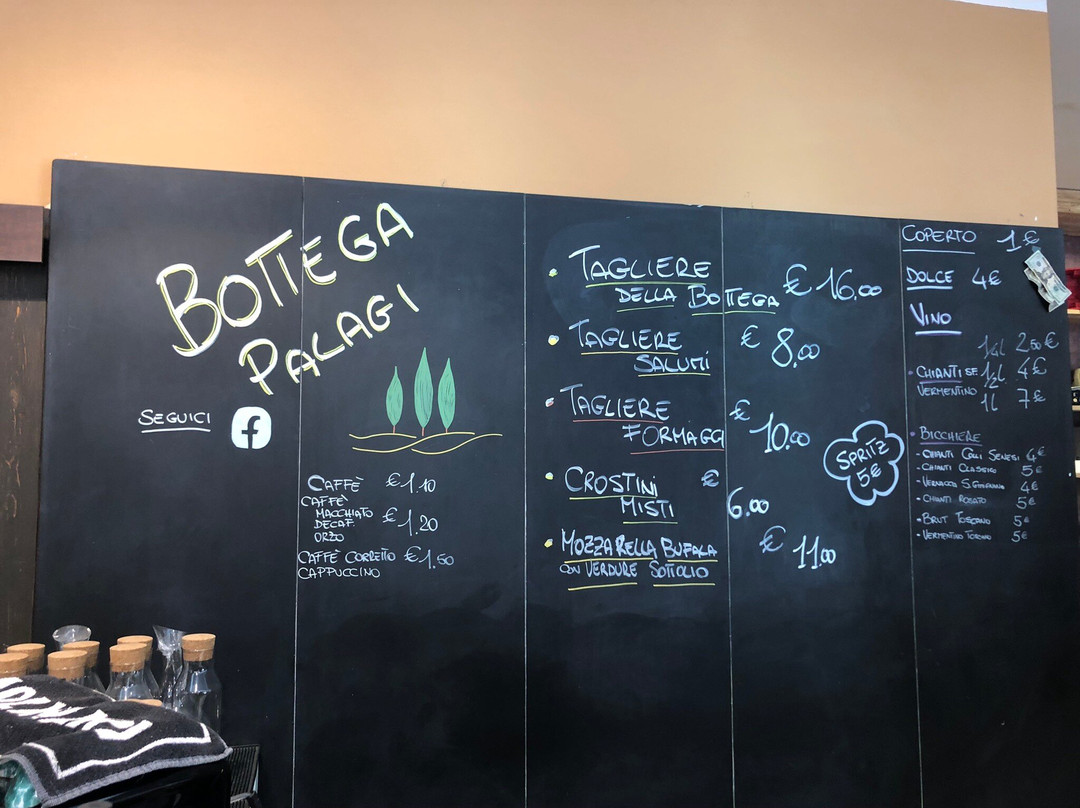 BOTTEGA
PALAGI
SEGUICI
CAFFÈ €1.10
CAFFÈ
MACCHIATO
DECAF. €1.20
ORZO
CAFFÈ CORRETTO €1,50
CAPPUCCINO
TAGLIERE
DELLA BOTTEGA €16,00
TAGLIERE € 8,00
SALUMI
TAGLIERE €
FORMAGGI 10,00
CROSTINI €
MISTI 6.00
MOZZARELLA BUFALA € 11,00
CON VERDURE SOTTOLIO
SPRITZ
5€
COPERTO 1€
DOLCE 4€
VINO
1/4l 2,50€
CHIANTI SE 1/2l 4€
VERMENTINO 1l 7€
BICCHIERE
- CHIANTI COLLI SENESI 4€
- CHIANTI CLASSICO 5€
- VERNACCIA S. 4€
- CHIANTI ROSATO 5€
- BRUT TOSCANO 5€
- VERMENTINO 5€